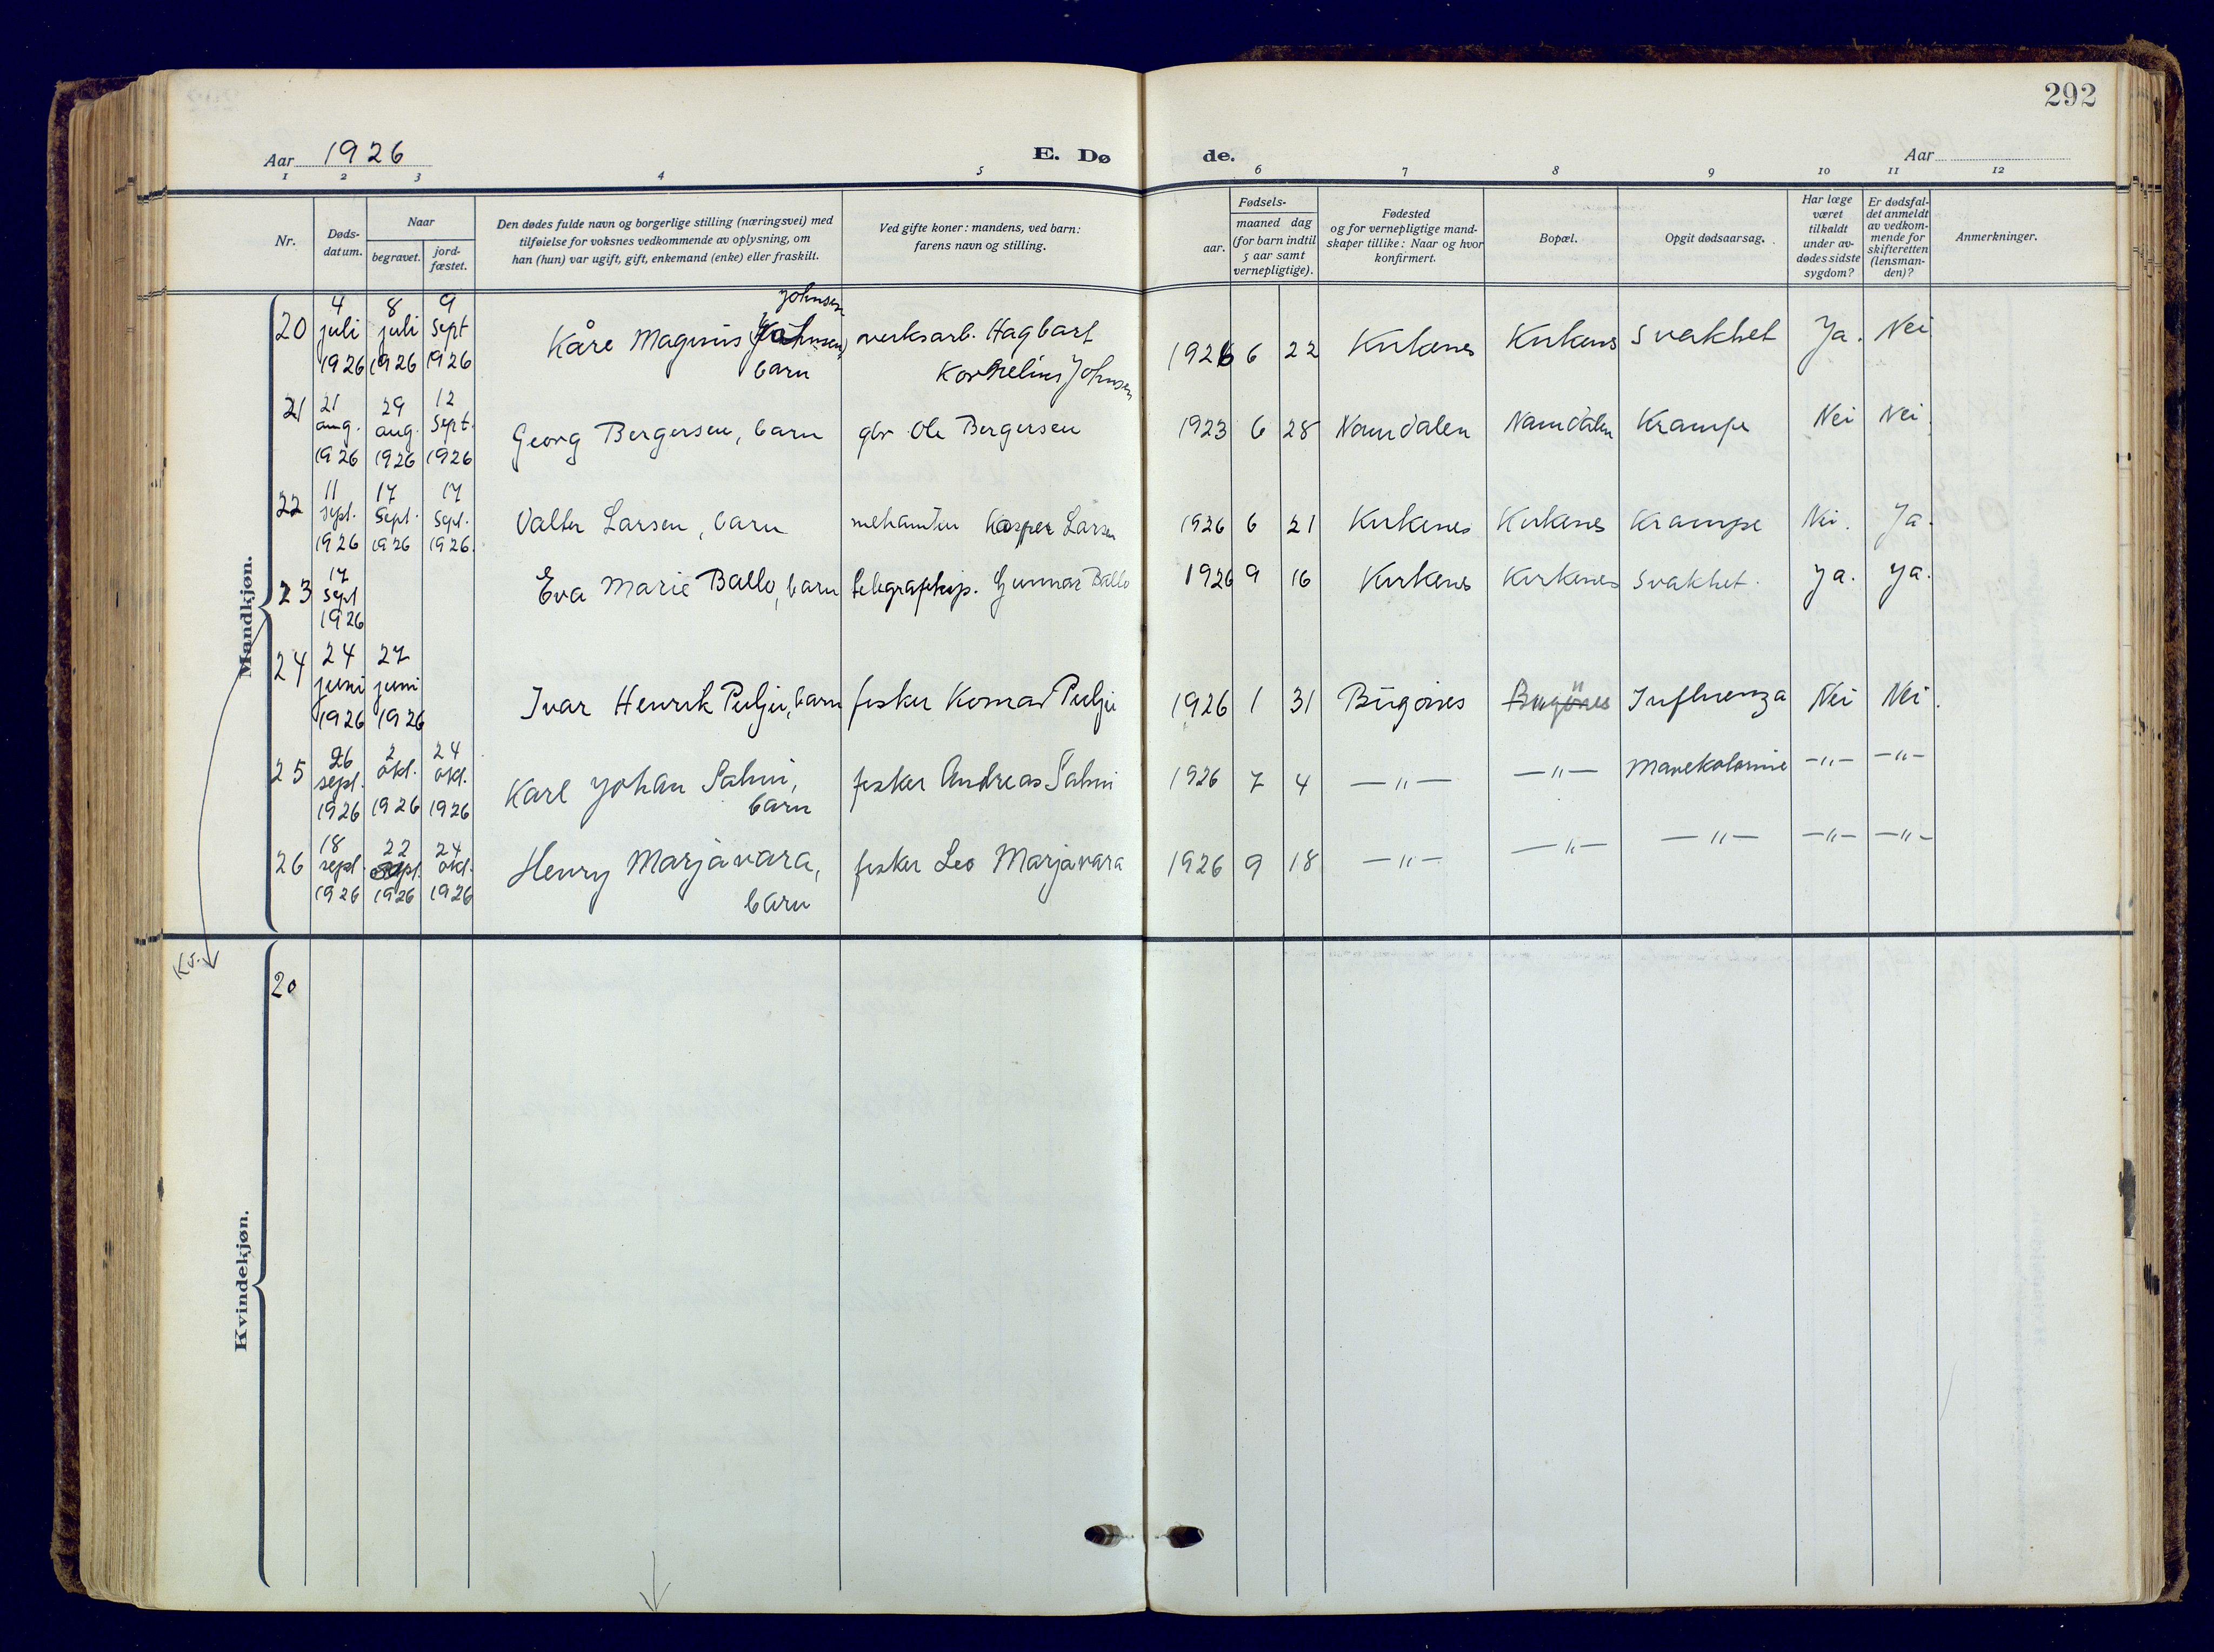 292
Aar 1926
E. Dø
de.
Aar
1 2 3 4 5 6 7 8 9 10 11 12
Nr.
Døds-
datum.
Naar
begravet.
jord-
fæstet.
Den dødes fulde navn og borgerlige stilling (næringsvei) med
tilføielse for voksnes vedkommende av oplysning, om
han (hun) var ugift, gift, enkemand (enke) eller fraskilt.
Ved gifte koner: mandens, ved barn:
farens navn og stilling.
Fødsels-
aar.
maaned dag
(for barn indtil
5 aar samt
vernepligtige).
Fødested
og for vernepligtige mand-
skaper tillike: Naar og hvor
konfirmert.
Bopæl.
Opgit dødsaarsag.
Har læge
været
tilkaldt
under av-
dødes sidste
sygdom?
Er dødsfal-
det anmeldt
av vedkom-
mende for
skifteretten
(lensman-
den)?
Anmerkninger.
Mandkjøn.
20 4 juli 1926 8 juli 1926 9 sept 1926 Kåre Magnus Johnsen, barn verksarb. Hagbart Kornelius Johnsen 1926 6 22 Kirkenes Kirkenes Svakhet Ja. Nei
21 21 aug. 1926 29 aug. 1926 12 sept. 1926 Georg Bergersen, barn gbr Ole Bergersen 1923 6 28 Namdalen Namdalen Krampe Nei Nei
22 11 sept. 1926 17 sept. 1926 17 sept. 1926. Valter Larsen, barn Kasper Larsen 1926 6 21 Kirkenes Kirkenes Krampe Nei. Ja.
23 17 sept 1926 Eva Marie Ballo, barn Gunnar Ballo 1926 9 16 Kirkenes Kirkenes Svakhet. Ja. Ja.
24 24 juni 1926 27 juni 1926 Ivar Henrik Puljü, barn fisker Konrad Puljü 1926 1 31 Bugönes Bugönes Influenza Nei Nei.
25 26 sept. 1926 2 okt. 1926 24 okt. 1926 Karl Johan Salmi, barn fisker Andreas Salmi 1926 7 4 —"— —"— —"— —"—
26 18 sept. 1926 22 sept. 1926 24 okt. 1926 Henry Marjavara, barn fisker Leo Marjavara 1926 9 18 —"— —"— —"— —"— —"—
Kv.
Kvindekjøn.
20